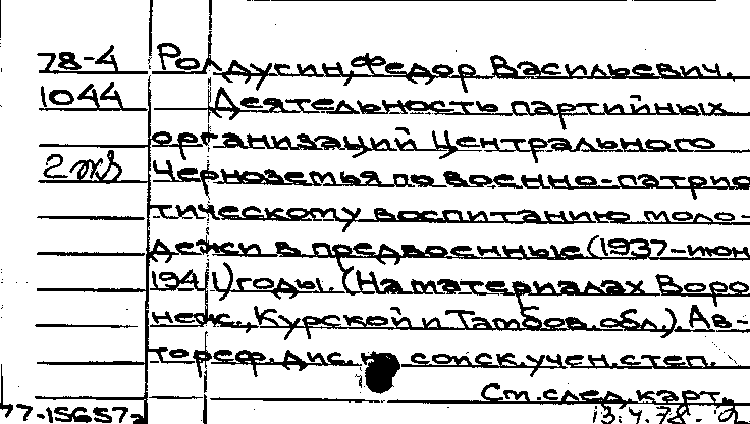 78-4 Ролдугин, Федор Васильевич.
1044 Деятельность партийных
организаций Центрального
2 экз Черноземья по военно-патрио
тическому воспитанию моло-
дежи в предвоенные (1937-июн
1941) годы. (На материалах Воро
неж., Курской и Тамбов. обл.). Ав-
тореф. дис. на соиск. учен. степ.
См. след. карт.
77-15657а 13.4.78.